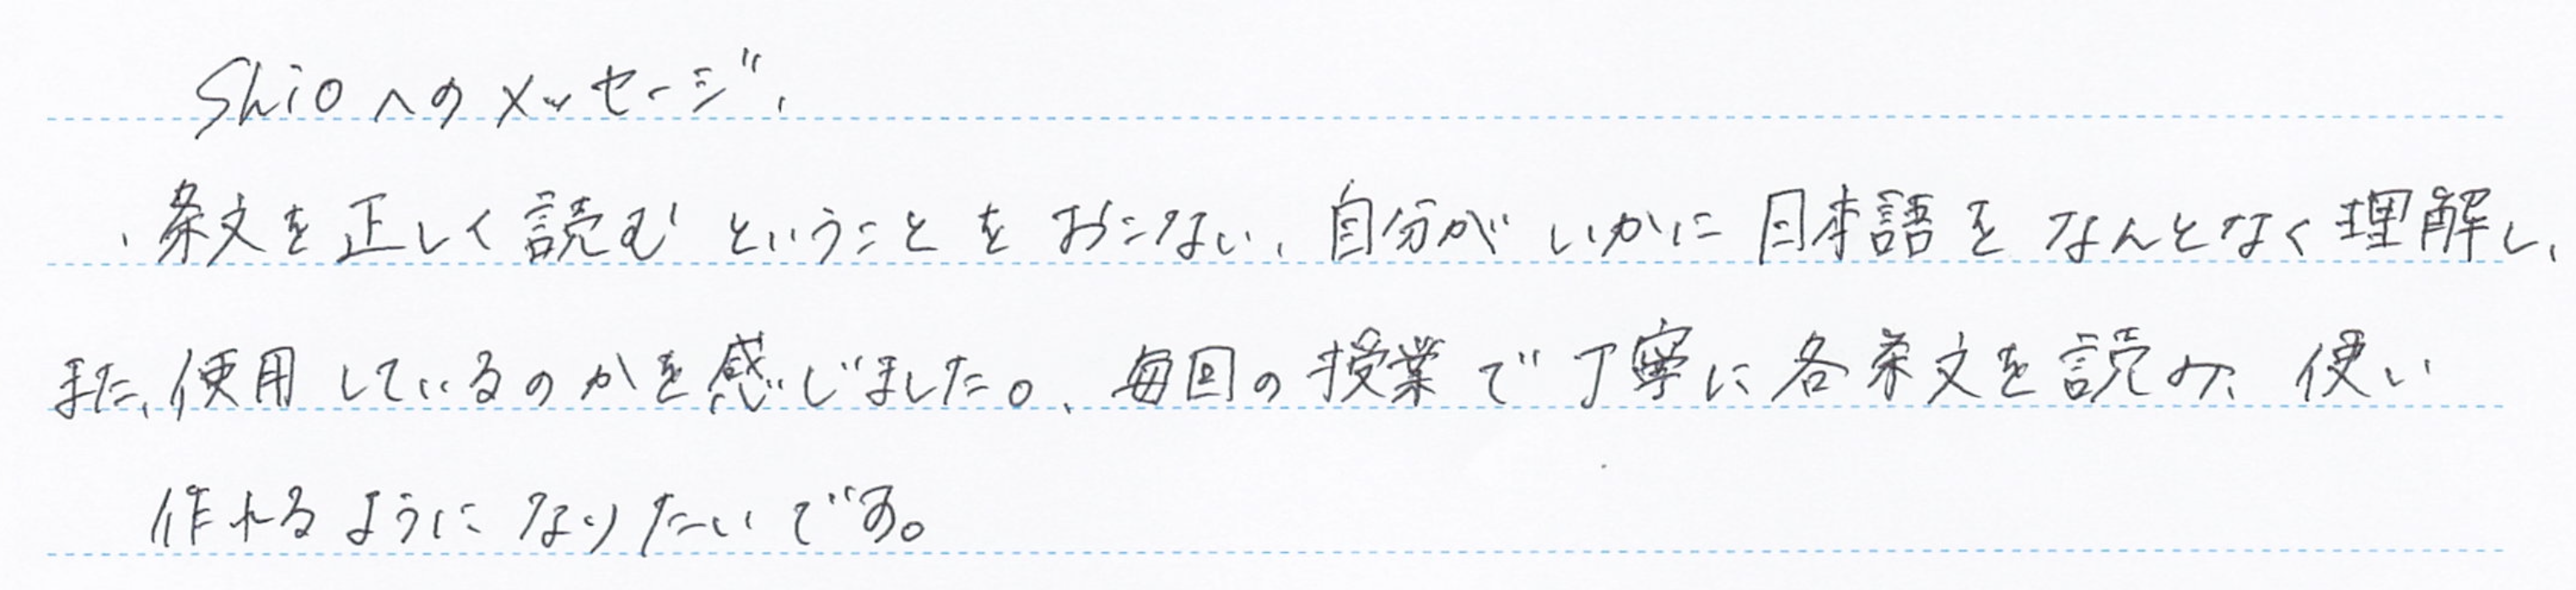 Shioへのメッセージ、
、条文を正しく読むということをおこない、自分がいかに日本語をなんとなく理解し、
また、使用しているのかを感じました。、毎回の授業で丁寧に各条文を読み、使い
作れるようになりたいです。